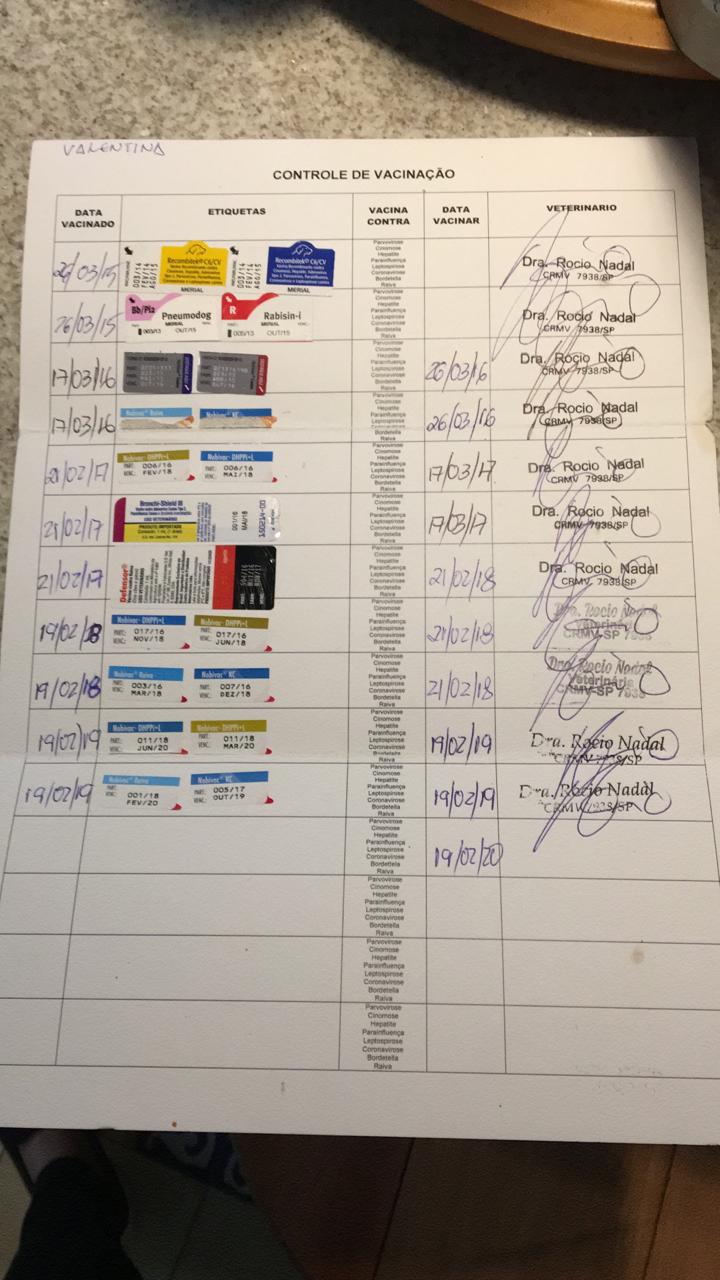 VALENTINA
CONTROLE DE VACINAÇÃO
DATA VACINADO ETIQUETAS VACINA CONTRA DATA VACINAR VETERINARIO
26/03/15 003/14 AGO/15 Recombitek® C6/CV MERIAL 003/14 FEV/14 AGO/15 Recombitek® C6/CV MERIAL Parvovirose Cinomose Hepatite Parainfluença Leptospirose Coronavirose Bordetella Raiva Dra. Rocio Nadal CRMV 7938/SP
26/03/15 Bb/Pi2 Pneumodog MERIAL 003/13 OUT/15 R Rabisin-i MERIAL 005/13 OUT/15 Parvovirose Cinomose Hepatite Parainfluença Leptospirose Coronavirose Bordetella Raiva Dra. Rocio Nadal CRMV 7938/SP
17/03/16 Parvovirose Cinomose Hepatite Parainfluença Leptospirose Coronavirose Bordetella Raiva 26/03/16 Dra. Rocio Nadal CRMV 7938/SP
17/03/16 Nobivac® Raiva Nobivac® KC Parvovirose Cinomose Hepatite Parainfluença Leptospirose Coronavirose Bordetella Raiva 26/03/16 Dra. Rocio Nadal CRMV 7938/SP
21/02/17 Nobivac® DHPPi+L PART: 006/16 VENC: FEV/18 Nobivac® DHPPi+L PART: 006/16 VENC: MAI/18 Parvovirose Cinomose Hepatite Parainfluença Leptospirose Coronavirose Bordetella Raiva 17/03/17 Dra. Rocio Nadal CRMV 7938/SP
21/02/17 Bronchi-Shield III USO VETERINÁRIO PRODUTO IMPORTADO 001/16 MAI/18 Parvovirose Cinomose Hepatite Parainfluença Leptospirose Coronavirose Bordetella Raiva 17/03/17 Dra. Rocio Nadal CRMV 7938/SP
21/02/17 Defensor® Parvovirose Cinomose Hepatite Parainfluença Leptospirose Coronavirose Bordetella Raiva 21/02/18 Dra. Rocio Nadal CRMV 7938/SP
19/02/18 Nobivac® DHPPi+L PART: 017/16 VENC: NOV/18 Nobivac® DHPPi+L PART: 017/16 VENC: JUN/18 Parvovirose Cinomose Hepatite Parainfluença Leptospirose Coronavirose Bordetella Raiva 21/02/18 Dra. Rocio Nadal Veterinária CRMV-SP 7938
19/02/18 Nobivac® Raiva PART: 003/16 VENC: MAR/18 Nobivac® KC PART: 007/16 VENC: DEZ/18 Parvovirose Cinomose Hepatite Parainfluença Leptospirose Coronavirose Bordetella Raiva 21/02/18 Dra. Rocio Nadal Veterinária CRMV-SP 7938
19/02/19 Nobivac® DHPPi+L PART: 011/18 VENC: JUN/20 Nobivac® DHPPi+L PART: 011/18 VENC: MAR/20 Parvovirose Cinomose Hepatite Parainfluença Leptospirose Coronavirose Bordetella Raiva 19/02/19 Dra. Rocio Nadal CRMV 7938/SP
19/02/19 Nobivac® Raiva PART: 001/18 VENC: FEV/20 Nobivac® KC PART: 005/17 VENC: OUT/19 Parvovirose Cinomose Hepatite Parainfluença Leptospirose Coronavirose Bordetella Raiva 19/02/19 Dra. Rocio Nadal CRMV 7938/SP
Parvovirose Cinomose Hepatite Parainfluença Leptospirose Coronavirose Bordetella Raiva 19/02/20
Parvovirose Cinomose Hepatite Parainfluença Leptospirose Coronavirose Bordetella Raiva
Parvovirose Cinomose Hepatite Parainfluença Leptospirose Coronavirose Bordetella Raiva
Parvovirose Cinomose Hepatite Parainfluença Leptospirose Coronavirose Bordetella Raiva